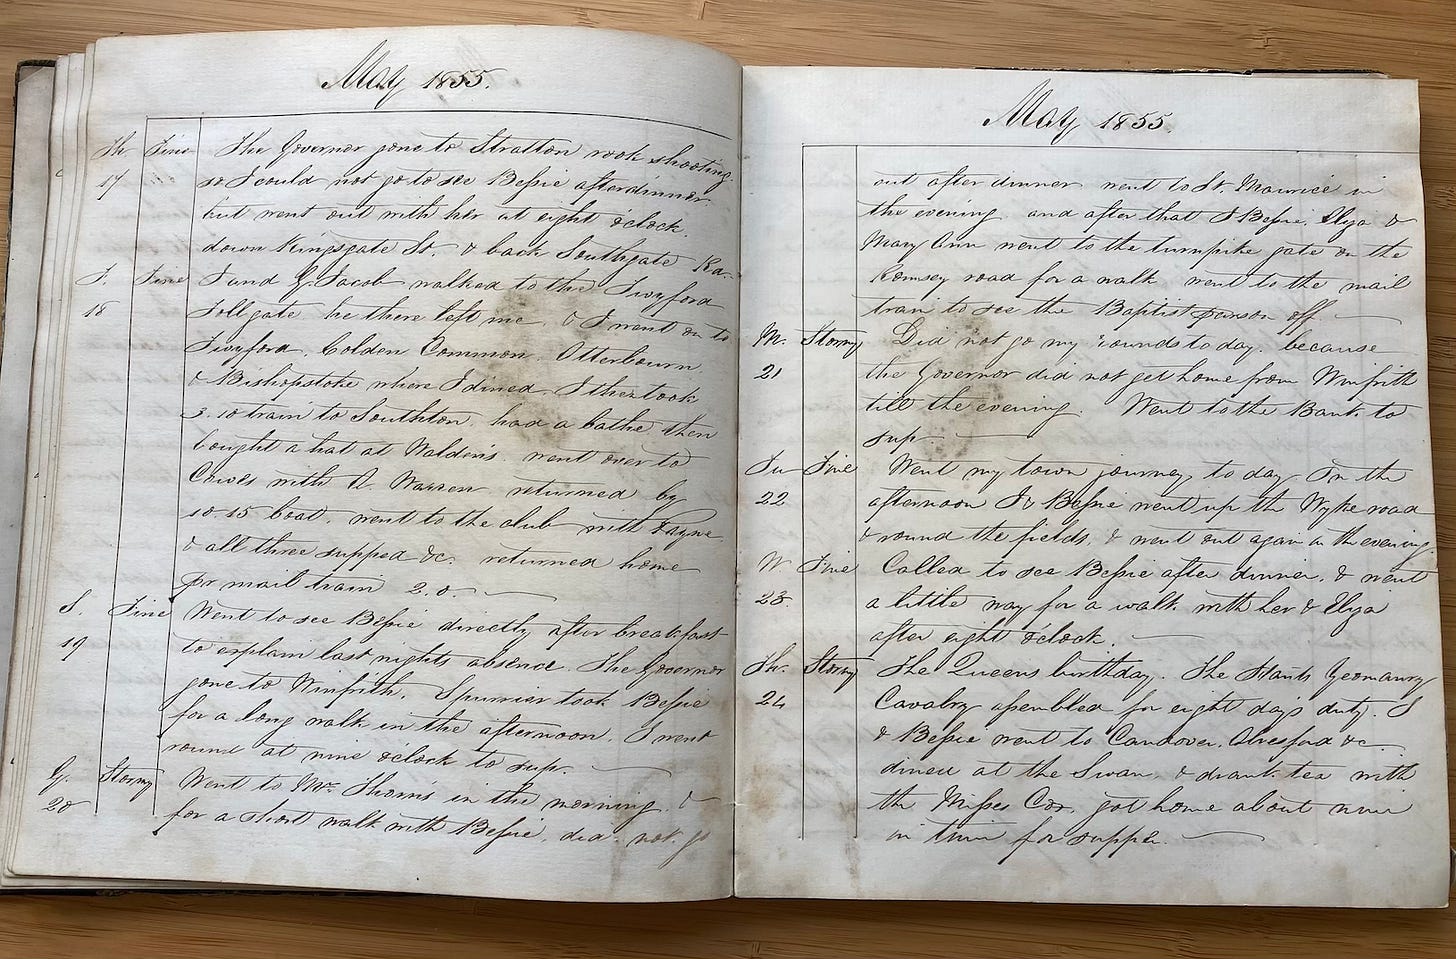 May 1855.
Th. Fine The Governor gone to Stratton rook shooting.
17 so I could not go to see Bessie after dinner.
but went out with her at eight o'clock.
down Kingsgate St. & back Southgate Rd.
F. Fine I and G. Jacob walked to the Twyford
18 Tollgate he there left me, & I went on to
Twyford, Colden Common, Otterbourn
& Bishopstoke where I dined. I then took
3.10 train to Southton. had a bathe, then
bought a hat at Waldins. went over to
Cowes with A Warren returned by
10.15 boat. went to the club with
& all three supped &c. returned home
pr mail train 2.0.
S. Fine Went to see Bessie directly after breakfast
19 to explain last nights absence. The Governor
gone to Winfrith. Spurrier took Bessie
for a long walk in the afternoon. I went
round at nine o'clock to sup.
Stormy Went to Mr. Thorns in the morning. &
20 for a short walk with Bessie, did not go
May 1855.
out after dinner went to St. Maurice in
the evening. and after that I Bessie, Elya &
Mary Ann went to the turnpike gate on the
Romsey road for a walk went to the mail
train to see the Baptist parson off.
M. Stormy Did not go my rounds to day. because
21 the Governor did not get home from Winfrith
till the evening. Went to the Bank to
sup
Tu Fine Went my town journey to day In the
22 afternoon I & Bessie went up the Wyke road
& round the fields, & went out again in the evening.
W. Fine Called to see Bessie after dinner. & went
23. a little way for a walk with her & Elya
after eight o'clock.
Th. Stormy The Queens birthday. The Hants Yeomanry
24 Cavalry assembled for eight days duty. I
& Bessie went to Candover, Alresford &c.
dined at the Swan, & drank tea with
the Misses Cox, got home about nine
in time for supper.